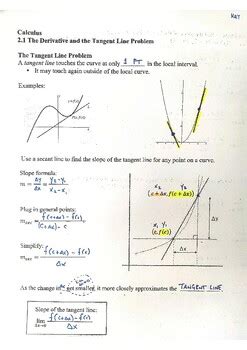 KEY
Calculus
2.1 The Derivative and the Tangent Line Problem
The Tangent Line Problem
A tangent line touches the curve at only 1 PT in the local interval.
• It may touch again outside of the local curve.
Examples:
Use a secant line to find the slope of the tangent line for any point on a curve.
Slope formula:
m = Δy/Δx = y₂-y₁/x₂-x₁
x₂ y₂
(c+Δx, f(c+Δx))
Plug in general points:
m_sec = f(c+Δx) - f(c)/(c+Δx) - c
x₁ y₁
(c, f(c))
Δy
Simplify:
m_sec = f(c+Δx) - f(c)/Δx
Δx
As the change in x gets smaller, it more closely approximates the TANGENT LINE.
Slope of the tangent line:
lim Δx→0 f(c+Δx) - f(c)/Δx